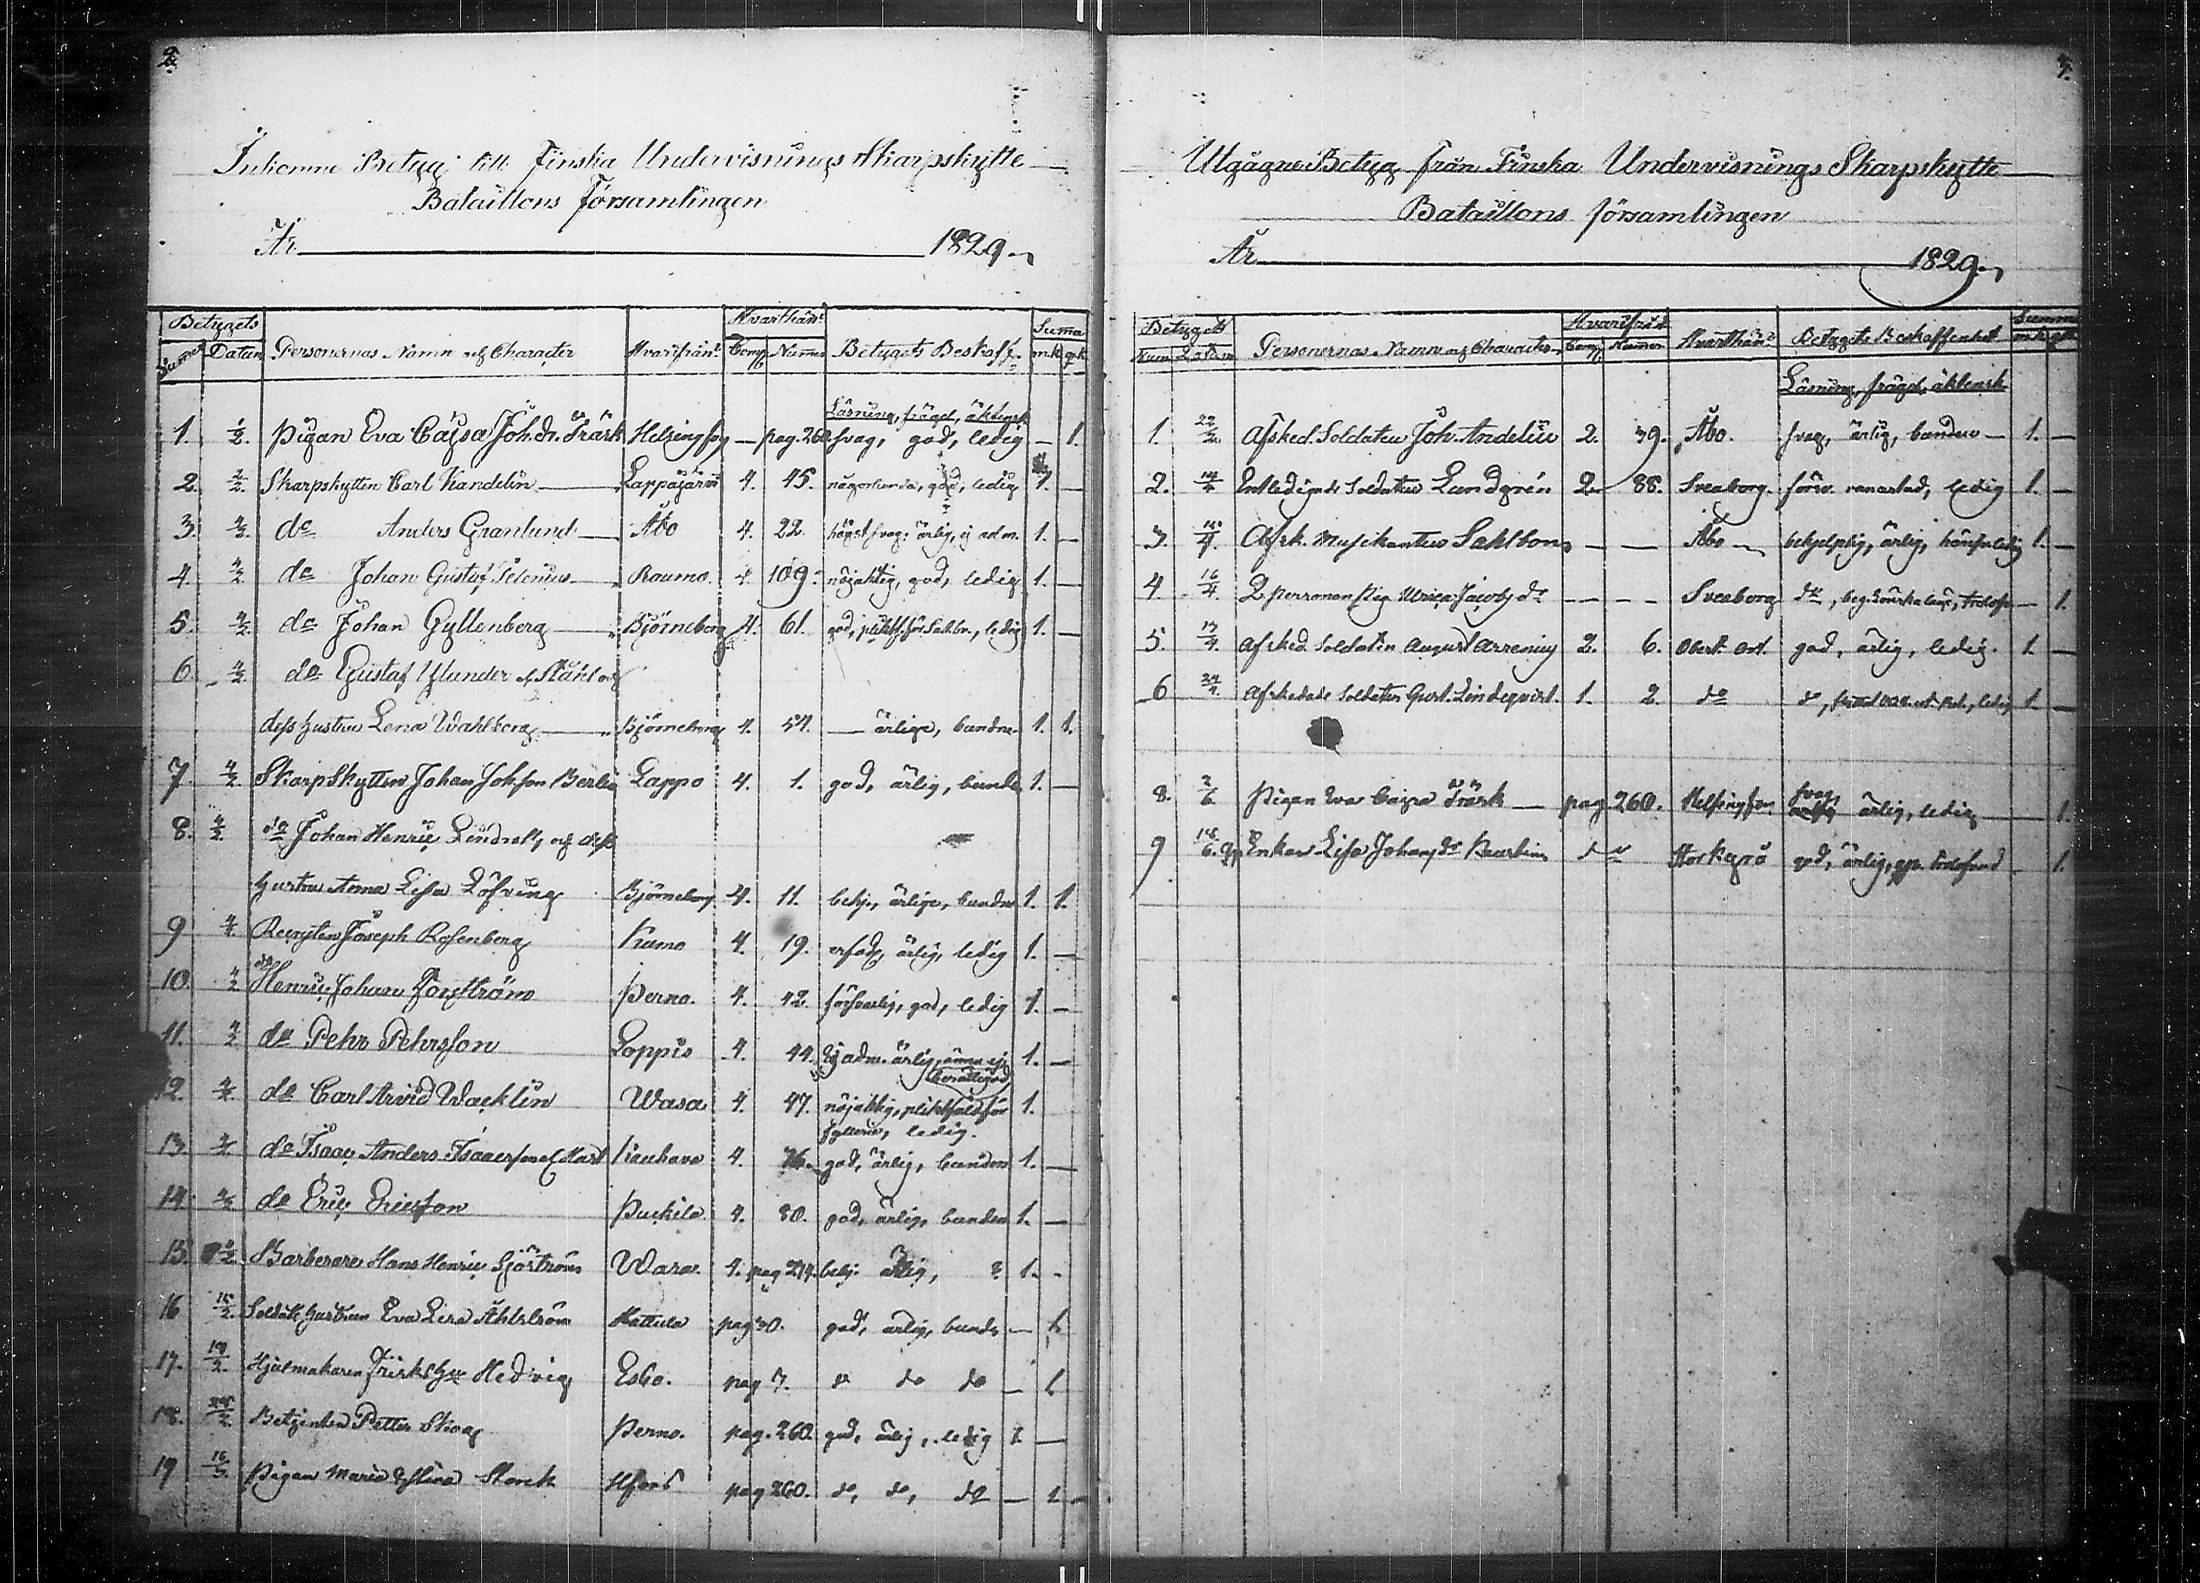 2.
Inkomne Betyg till Finska Undervisnings Skarpskytte
Bataillons Församlingen
År 1829.
Betygets Hvarthän Suma
Numer Datum Personernas Namn och Character Hvarifrån Comp. Numer Betygets Beskaff. mk qk
Läsning, frägd, äktensk.
1. 1/2. Pigan Eva Cajsa Joh.dr. Träsk Helsingfors — pag. 260 svag, god, ledig — 1.
2. 2/2. Skarpskytten Carl Kandelin Lappajärvi 4. 45. någorlunda, god, ledig 1. —
3. 4/2. do Anders Granlund Åbo 4. 22. högst svag, ärlig, ej adm. 1. —
4. 4/2 do Johan Gustaf Raumo. 4. 109. nöjaktig, god, ledig 1. —
5. 4/2. do Johan Gyllenberg Björneborg 4. 61. god, ledig 1. —
6. 4/2. do Gustaf
dess hustru Lena Wahlberg Björneborg 4. 54. — ärlige, bundne 1. 1.
7. 4/2. Skarpskytten Johan Johsson Berlin Lappo 4. 1. god, ärlig, bunden 1. —
8. 4/2. do Johan Henric och dess
hustru Anna Lisa Löfving Björneborg 4. 11. behj., ärlige, bundne 1. 1.
9 4/2. Recryten Joseph Rosenberg Kumo 4. 19. ärlig, ledig 1. —
10. 4/2 do Henric Johan Forsström Perno. 4. 42. försvarlig, god, ledig 1. —
11. 4/2 do Pehr Pehrsson Loppis 4. 44. Ej adm. ärlig, ännu ej 1. —
berättigad
12. 4/2 do Carl Arvid Wacklin Wasa 4. 47. nöjaktig, pliktfäld för 1.
fylleri, ledig.
13. 4/2 do Isaac Anders Isaacsson Kauhava 4. 76. god, ärlig, bunden 1. —
14. 4/2 do Eric Ericsson Puckila 4. 80. god, ärlig, bunden 1. —
15. Barberare Hans Henric Sjöström Wasa. 4. pag 274. behj. ärlig, ? 1. -
16 15/2. Soldats hustrun Eva Lisa Åhlström Hattula pag 30. god, ärlig, bunden — 1.
17. 19/2. Hjulmakaren Hedvig Esbo. pag 7. do do do — 1
18. 28/2. Betjenten Petter Skog Perno. pag. 260. god, ärlig, ledig 1. —
19 16/3. Pigan Maria Storck Hfors pag 260. do, do, do — 1.
Utgågne Betyg från Finska Undervisnings Skarpskytte
Bataillons församlingen
År 1829.
Betygets Hvarifrån Summa
Num. Datum Personernas Namn och Character Comp. Numer Hvarthän Betygets Beskaffenhet mk qk
Läsning, frägd, äktensk.
1. 22/2. Afsked. Soldaten Joh. Andelin 2. 39. Åbo. svag, ärlig, bunden — 1. —
2. Entledigade Soldaten Lundgrén 2. 88. Sveaborg. försv. vanartad, ledig 1. —
3. Afsk. Musikanten Sahlbom — — Åbo behjelplig, ärlig, ledig 1. —
4 16/4. 2 personer Ulrica Jacobs dr — — Sveaborg do, — 1.
5. 17/4. Afsked. Soldaten August Arrenius 2. 6. god, ärlig, ledig. 1. —
6 24/4. Afskedade Soldaten Gust. Lindqvist. 1. 2. do do, ledig 1. —
8. 2/6. Pigan Eva Cajsa Träsk — pag 260. Helsingfors svag, ärlig, ledig — 1.
9. 18/6. Enkan Lisa Johans dr do god, ärlig, — 1.